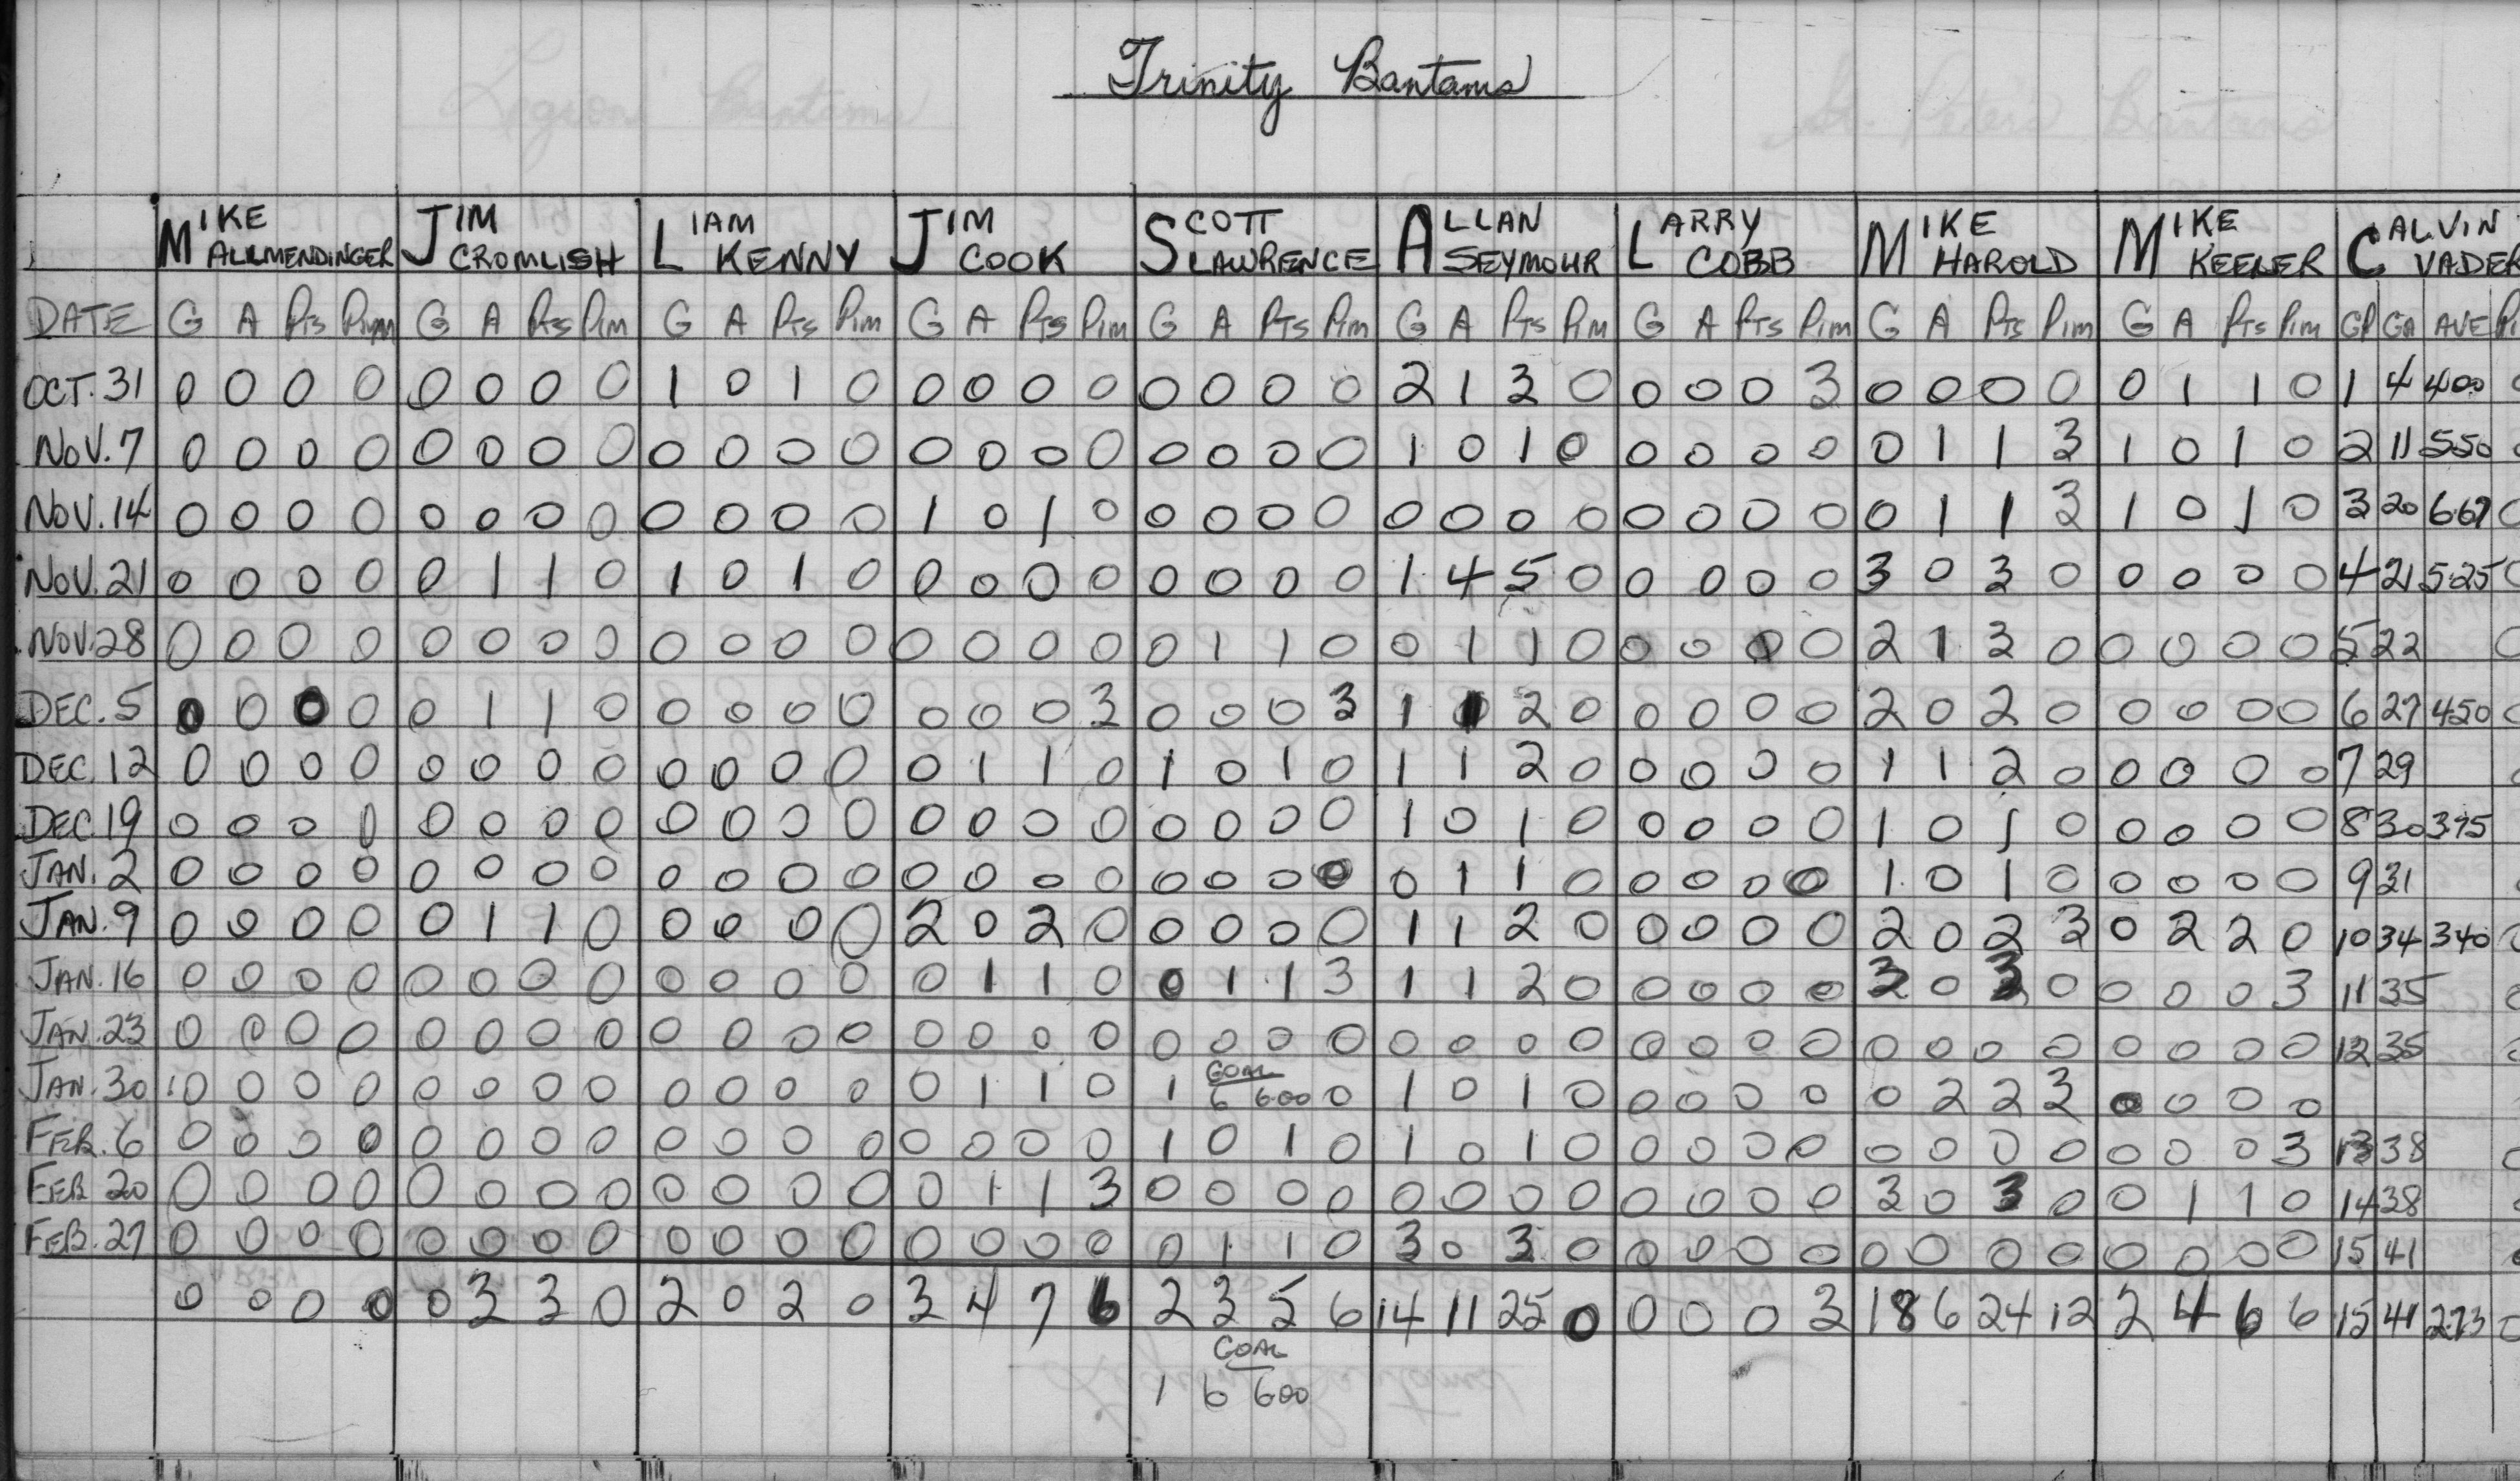 Trinity Bantams
MIKE ALLMENDINGER JIM CROMLISH LIAM KENNY JIM COOK SCOTT LAWRENCE ALLAN SEYMOUR LARRY COBB MIKE HAROLD MIKE KEELER CALVIN VADER
DATE G A Pts Pim G A Pts Pim G A Pts Pim G A Pts Pim G A Pts Pim G A Pts Pim G A Pts Pim G A Pts Pim G A Pts Pim GP GA AVE
OCT. 31 0 0 0 0 0 0 0 0 1 0 1 0 0 0 0 0 0 0 0 0 2 1 3 0 0 0 0 3 0 0 0 0 0 1 1 0 1 4 400
NOV. 7 0 0 0 0 0 0 0 0 0 0 0 0 0 0 0 0 0 0 0 0 1 0 1 0 0 0 0 0 0 1 1 3 1 0 1 0 2 11 550
NOV. 14 0 0 0 0 0 0 0 0 0 0 0 0 1 0 1 0 0 0 0 0 0 0 0 0 0 0 0 0 0 1 1 3 1 0 1 0 3 20 667
NOV. 21 0 0 0 0 0 1 1 0 1 0 1 0 0 0 0 0 0 0 0 0 1 4 5 0 0 0 0 0 3 0 3 0 0 0 0 0 4 21 5.25
NOV. 28 0 0 0 0 0 0 0 0 0 0 0 0 0 0 0 0 0 1 1 0 0 1 1 0 0 0 0 0 2 1 3 0 0 0 0 0 5 22
DEC. 5 0 0 0 0 0 1 1 0 0 0 0 0 0 0 0 3 0 0 0 3 1 1 2 0 0 0 0 0 2 0 2 0 0 0 0 0 6 27 450
DEC. 12 0 0 0 0 0 0 0 0 0 0 0 0 0 1 1 0 1 0 1 0 1 1 2 0 0 0 0 0 1 1 2 0 0 0 0 0 7 29
DEC. 19 0 0 0 0 0 0 0 0 0 0 0 0 0 0 0 0 0 0 0 0 1 0 1 0 0 0 0 0 1 0 1 0 0 0 0 0 8 30 375
JAN. 2 0 0 0 0 0 0 0 0 0 0 0 0 0 0 0 0 0 0 0 0 0 1 1 0 0 0 0 0 1 0 1 0 0 0 0 0 9 31
JAN. 9 0 0 0 0 0 1 1 0 0 0 0 0 2 0 2 0 0 0 0 0 1 1 2 0 0 0 0 0 2 0 2 3 0 2 2 0 10 34 340
JAN. 16 0 0 0 0 0 0 0 0 0 0 0 0 0 1 1 0 0 1 1 3 1 1 2 0 0 0 0 0 3 0 3 0 0 0 0 3 11 35
JAN. 23 0 0 0 0 0 0 0 0 0 0 0 0 0 0 0 0 0 0 0 0 0 0 0 0 0 0 0 0 0 0 0 0 0 0 0 0 12 35
JAN. 30 0 0 0 0 0 0 0 0 0 0 0 0 0 1 1 0 1 GOAL 6 600 0 1 0 1 0 0 0 0 0 0 2 2 3 0 0 0 0
FEB. 6 0 0 0 0 0 0 0 0 0 0 0 0 0 0 0 0 1 0 1 0 1 0 1 0 0 0 0 0 0 0 0 0 0 0 0 3 13 38
FEB 20 0 0 0 0 0 0 0 0 0 0 0 0 0 1 1 3 0 0 0 0 0 0 0 0 0 0 0 0 3 0 3 0 0 1 1 0 14 38
FEB. 27 0 0 0 0 0 0 0 0 0 0 0 0 0 0 0 0 0 1 1 0 3 0 3 0 0 0 0 0 0 0 0 0 0 0 0 0 15 41
0 0 0 0 0 3 3 0 2 0 2 0 3 4 7 6 2 3 5 6 14 11 25 0 0 0 0 3 18 6 24 12 2 4 6 6 15 41 273
GOAL
1 6 600